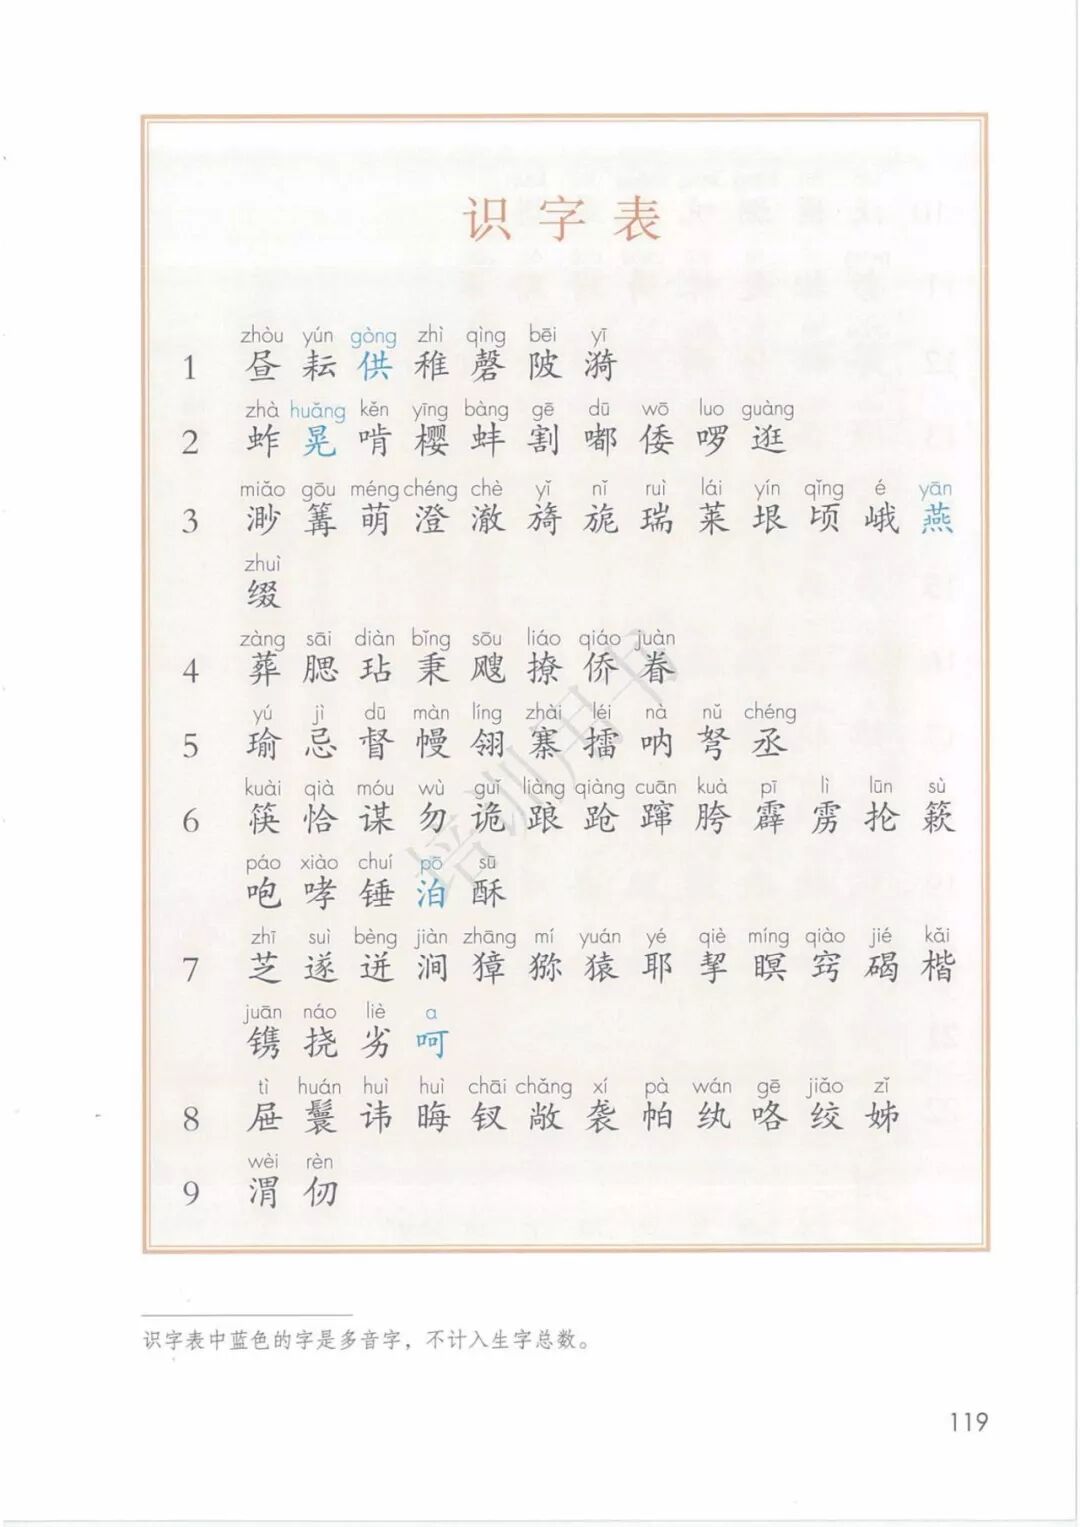 识字表
zhòu yún gòng zhì qìng bēi yī
1 昼 耘 供 稚 磬 陂 漪
zhà huǎng kěn yīng bàng gē dū wō luo guàng
2 蚱 晃 啃 樱 蚌 割 嘟 倭 啰 逛
miǎo gōu méng chéng chè yǐ nǐ ruì lái yín qǐng é yān
3 渺 篝 萌 澄 澈 旖 旎 瑞 莱 垠 顷 峨 燕
zhuì
缀
zàng sāi diàn bǐng sōu liáo qiáo juàn
4 葬 腮 玷 秉 飕 撩 侨 眷
yú jì dū màn líng zhài léi nà nǔ chéng
5 瑜 忌 督 幔 翎 寨 擂 呐 弩 丞
kuài qià móu wù guǐ liàng qiàng cuān kuà pī lì lūn sù
6 筷 恰 谋 勿 诡 踉 跄 蹿 胯 霹 雳 抡 簌
páo xiào chuí pō sū
咆 哮 锤 泊 酥
zhī suì bèng jiàn zhāng mí yuán yé qiè míng qiào jié kǎi
7 芝 遂 迸 涧 獐 猕 猿 耶 挈 瞑 窍 碣 楷
juān náo liè a
镌 挠 劣 呵
tì huán huì huì chāi chǎng xí pà wán gē jiǎo zǐ
8 屉 鬟 讳 晦 钗 敞 袭 帕 纨 咯 绞 姊
wèi rèn
9 渭 仞
培训用书
识字表中蓝色的字是多音字，不计入生字总数。
119